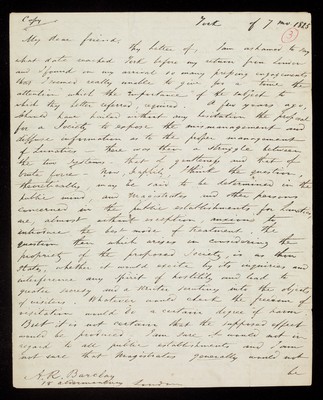 Copy
York of 7 mo. 1828
3
My dear friend,
Thy letter of , I am ashamed to say
what date reached York before my return from London
and I found on my arrival so many pressing engagements
that I seemed really unable to give for a time the
attention which the importance of the subject to
which thy letter referred, required. A few years ago,
I should have hailed without any hesitation the proposal
for a Society to expose the mismanagement and
diffuse information as to the proper management
of Lunatics. There was then a struggle between
the two systems that of gentleness and that of
brute force. Now, happily, I think the question,
theoretically, may be said to be determined in the
public mind, and Magistrates and other persons
concerned in the public establishments for Lunatics,
are, almost without exception anxious to
introduce the best mode of treatment. The
question then which arises in considering the
propriety of the proposed Society, is, as thou
states, whether it would excite by its inquiries and
interference any spirit of hostility and lead to
greater secrecy and a stricter scrutiny into the objects
of visitors. Whatever would check the freedom of
visitation would do a certain degree of harm
But it is not certain that the supposed effect
would be produced. I am sure it would not in
regard to all public establishments and I am
not sure that Magistrates generally would not
be
A. R. Barclay
London